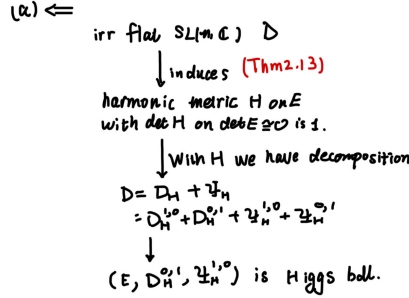 (a) ⇐
irr flat SL(n, ℂ) D
↓ induces (Thm2.13)
harmonic metric H on E
with det H on det E ≃ O is 1.
↓ With H we have decomposition
D = D_H + Ψ_H
= D_H^{1,0} + D_H^{0,1} + Ψ_H^{1,0} + Ψ_H^{0,1}
↓
(E, D_H^{0,1}, Ψ_H^{1,0}) is Higgs bdl.